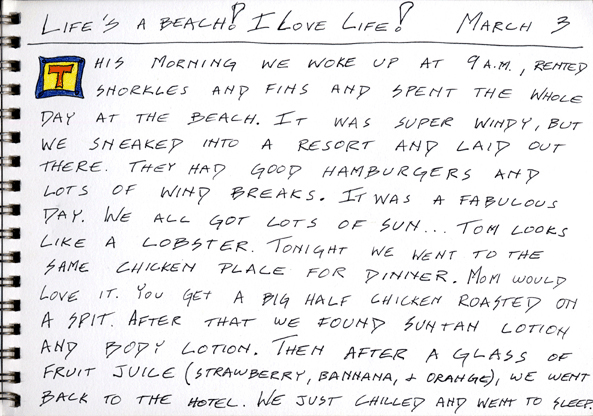 LIFE'S A BEACH! I LOVE LIFE! MARCH 3
THIS MORNING WE WOKE UP AT 9 A.M., RENTED
SNORKLES AND FINS AND SPENT THE WHOLE
DAY AT THE BEACH. IT WAS SUPER WINDY, BUT
WE SNEAKED INTO A RESORT AND LAID OUT
THERE. THEY HAD GOOD HAMBURGERS AND
LOTS OF WIND BREAKS. IT WAS A FABULOUS
DAY. WE ALL GOT LOTS OF SUN... TOM LOOKS
LIKE A LOBSTER. TONIGHT WE WENT TO THE
SAME CHICKEN PLACE FOR DINNER. MOM WOULD
LOVE IT. YOU GET A BIG HALF CHICKEN ROASTED ON
A SPIT. AFTER THAT WE FOUND SUNTAN LOTION
AND BODY LOTION. THEN AFTER A GLASS OF
FRUIT JUICE (STRAWBERRY, BANNANA, + ORANGE), WE WENT
BACK TO THE HOTEL. WE JUST CHILLED AND WENT TO SLEEP.